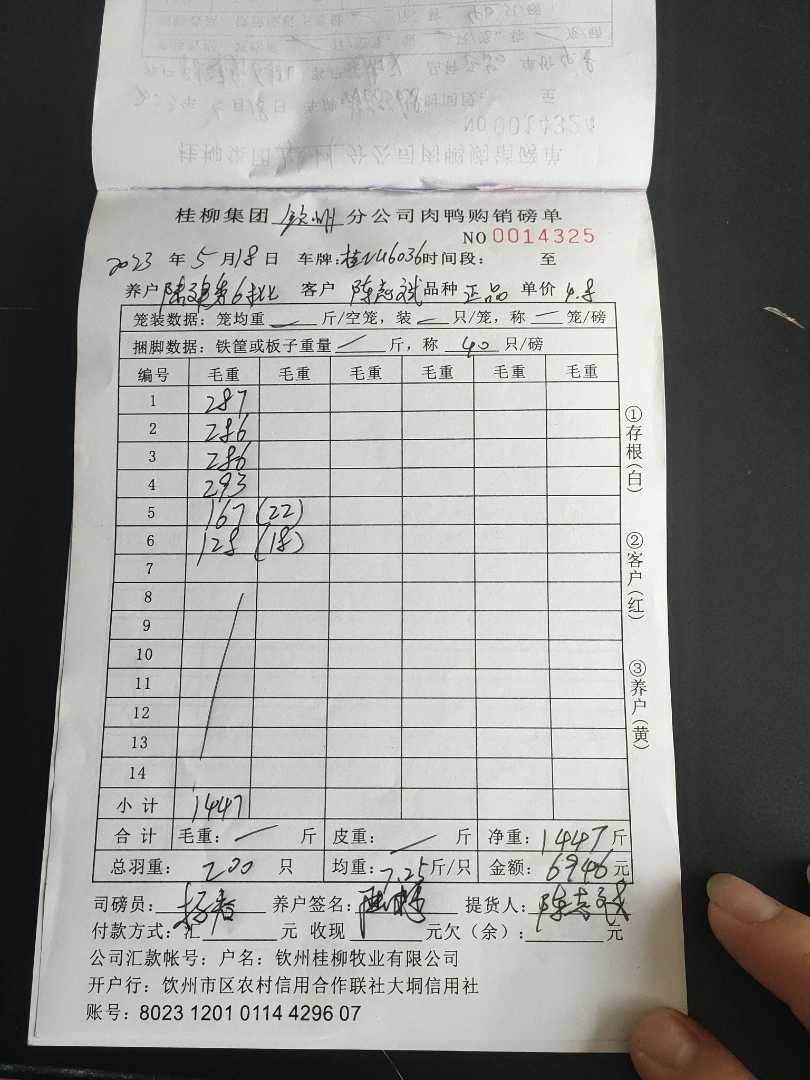 桂柳集团 钦州 分公司肉鸭购销磅单
NO 0014325
2023 年 5 月 18 日 车牌: 时间段: 至
养户 客户 陈志斌 品种 正品 单价 4.8
笼装数据:笼均重 — 斤/空笼,装 — 只/笼,称 — 笼/磅
捆脚数据:铁筐或板子重量 — 斤,称 40 只/磅
编号 毛重 毛重 毛重 毛重 毛重 毛重
1 287
2 286
3 286
4 293
5 167 (22)
6 128 (18)
7
8
9
10
11
12
13
14
小计 1447
合计 毛重: — 斤 皮重: — 斤 净重: 1447 斤
总羽重: 200 只 均重: 7.25 斤/只 金额: 6946 元
司磅员: 养户签名: 提货人: 陈志斌
付款方式:汇 元 收现 元欠(余): 元
公司汇款帐号:户名:钦州桂柳牧业有限公司
开户行:钦州市区农村信用合作联社大垌信用社
账号:8023 1201 0114 4296 07
①存根(白)
②客户(红)
③养户(黄)